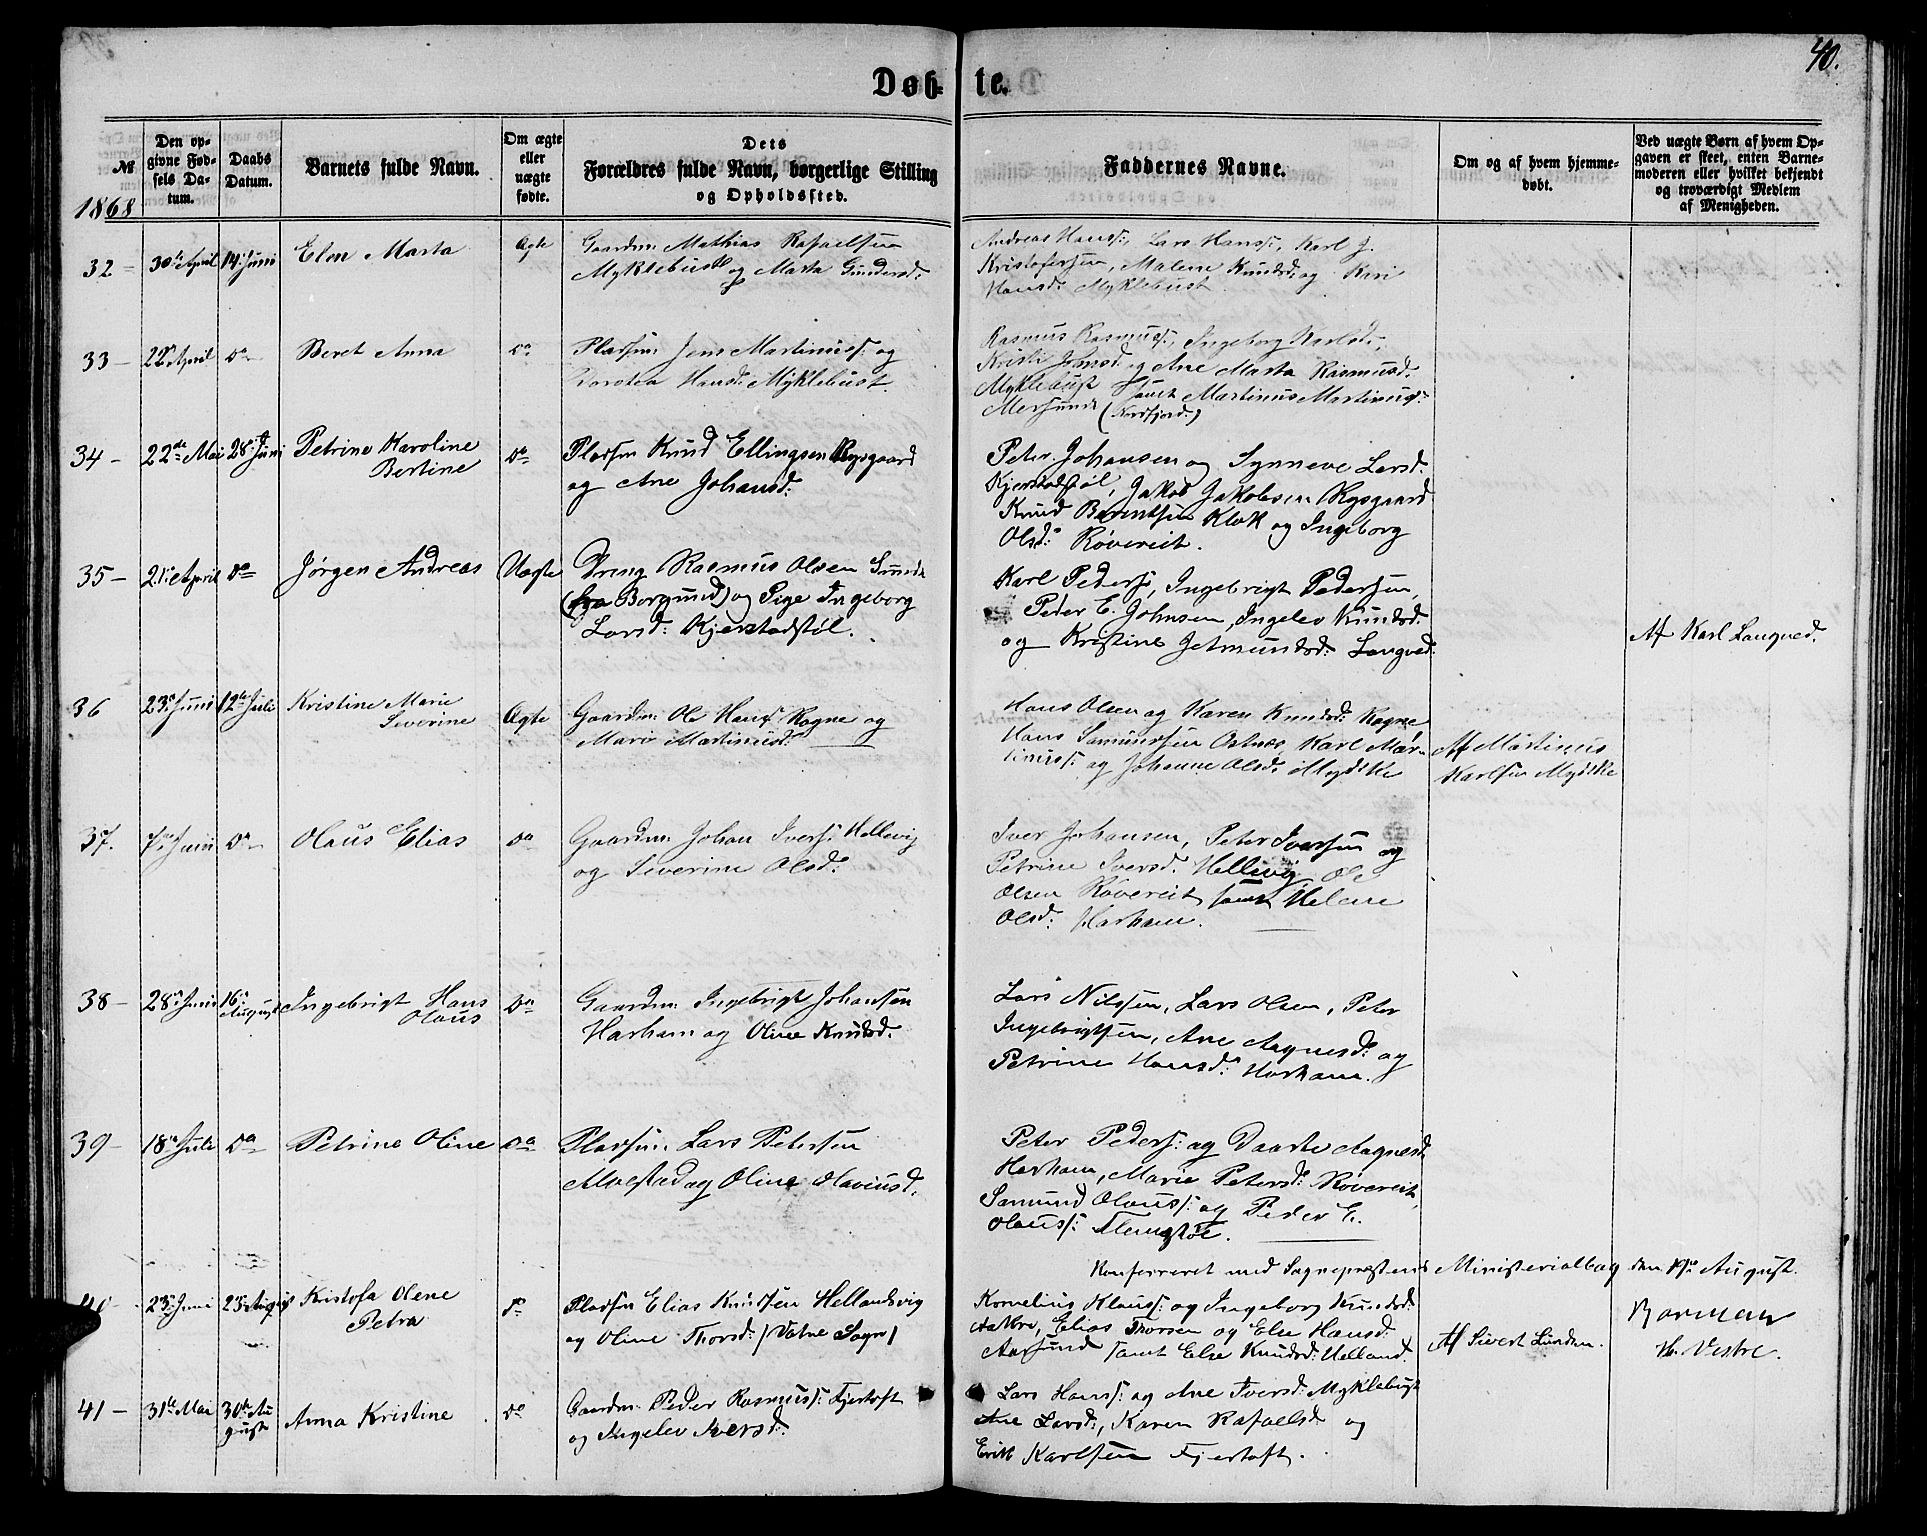 40.
Døbte.
№
1868
Den op-
givne Fød-
sels Da-
tum.
Daabs
Datum.
Barnets fulde Navn.
Om ægte
eller
uægte
fødte.
Dets
Forældres fulde Navn, borgerlige Stilling
og Opholdssted.
Faddernes Navne.
Om og af hvem hjemme-
døbt.
Ved uægte Børn af hvem Op-
gaven er skeet, enten Barne-
moderen eller hvilket bekjendt
og troværdigt Medlem
af Menigheden.
32 - 30te April 14. Juni Elen Marta Ægte
Gaardm: Mathias Rafaelsen
Myklebust og Marta Gundersd:
Andreas Hanss:, Lars Hanss:, Karl J.
Kristofersen, Malene Knudsd: og Kari
Hansd: Myklebust.
33 - 22de April Do Beret Anna Do
Pladsm: Jens Martinuss: og
Dorotea Hansd: Myklebust.
Rasmus Rasmuss:, Ingeborg Karlsd:,
Kristi Johnsd: og Ane Marta Rasmusd.
Myklebust samt Martinus Martinuss:
(Nordfjord:)
34 - 22de Mai 28de Juni Petrine Karoline
Bertine Do
Pladsm Knud Ellingsen Rysgaard
og Ane Johansd:
Peter Johansen og Synneve Larsd:
Kjerstadstøl, Jakob Jakobsen Rysgaard
Knud Berntsen Klok og Ingeborg
Olsd: Røvereit.
35 - 21de April Do Jørgen Andreas Uægte
Dreng Rasmus Olsen Sunde
(fra Borgund) og Pige Ingeborg
Larsd: Kjerstadstøl.
Karl Peders:, Ingebrigt Pedersen,
Peder E. Johnsen, Ingelev Knudsd:
og Kristine Jetmundsd: Langved.
Af Karl Langved.
36 23de Juni 12te Juli Kristine Marie
Severine Ægte
Gaardm: Ole Hans: Rogne og
Marie Martinusd:
Hans Olsen og Karen Knudsd: Rogne
Hans Samundsen Ostnes, Karl Mar-
tinuss: og Johanne Olsd: Myske
Af Martinus
Karlsen Myske
37. 7de Juni Do Olaus Elias Do
Gaardm: Johan Ivers: Hellevig
og Severine Olsd:
Iver Johansen, Peter Iversen og
Petrine Iversd: Hellevig, Ole
Olsen Røvereit samt Helene
Olsd: Harham.
38 - 28de Juni 16de
August Ingebrigt Hans
Olaus Do
Gaardm: Ingebrigt Johansen
Harham og Oline Knudsd.
Lars Nilssen, Lars Olsen, Peter
Ingebrigtsen, Ane Aagnesd: og
Petrine Hansd: Harham.
39 - 18de Juli Do Petrine Oline Do
Pladsm: Lars Petersen
Alvestad og Oline Olausd.
Peter Peders: og Daarte Aagnesd:
Harham, Marie Petersd: Røvereit,
Samund Olauss: og Peder E.
Olauss: Flemstøl.
Konfereret med Sogneprestens Ministerialbog den 19de August.
Borman
H. Vestre.
40 - 23de Juni 23de August Kristofa Olene
Petra Do
Pladsm Elias Knutsen Hellandsvig
og Oline Thorsd: / Vatne Sogn /
Kornelius Klauss: og Ingeborg Knudsd:
Aakre, Elias Thorsen og Else Hansd:
Aarsund samt Else Knudsd: Helland.
Af Sivert Lunden.
41 - 31te Mai 30te Au-
gust Anna Kristine Do
Gaardm: Peder Rasmuss: Fjertoft
og Ingelev Iversd:
Lars Hanss: og Ane Iversd: Myklebust
Ane Larsd:, Karen Rafaelsd: og
Erik Karlsen Fjertoft.